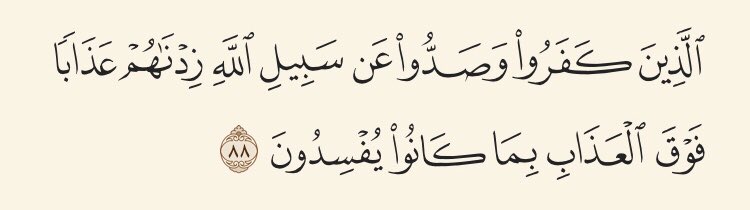 ٱلَّذِينَ كَفَرُوا۟ وَصَدُّوا۟ عَن سَبِيلِ ٱللَّهِ زِدْنَٰهُمْ عَذَابًا
فَوْقَ ٱلْعَذَابِ بِمَا كَانُوا۟ يُفْسِدُونَ ٨٨